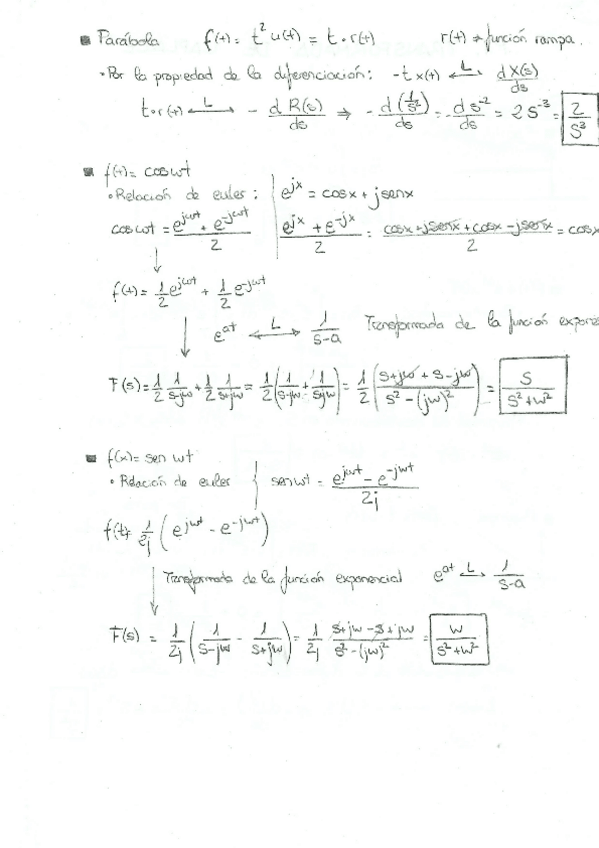 ▪ Parábola f(t) = t² u(t) = t · r(t) r(t) → función rampa.
• Por la propiedad de la diferenciación: -t x(t) ←L→ dX(s)/ds
t · r(t) ←L→ - dR(s)/ds ⇒ - d(1/s²)/ds = - d s⁻²/ds = 2 s⁻³ = 2/s³
▪ f(t) = cos wt
• Relación de euler: e^{jx} = cos x + j sen x
cos wt = (e^{jwt} + e^{-jwt})/2 (e^{jx} + e^{-jx})/2 = (cos x + j sen x + cos x - j sen x)/2 = cos x
f(t) = 1/2 e^{jwt} + 1/2 e^{-jwt}
e^{at} ←L→ 1/(s-a) Transformada de la función
F(s) = 1/2 1/(s-jw) + 1/2 1/(s+jw) = 1/2 (1/(s-jw) + 1/(s+jw)) = 1/2 ((s+jw + s-jw)/(s² - (jw)²)) = s/(s²+w²)
▪ f(x) = sen wt
• Relación de euler { sen wt = (e^{jwt} - e^{-jwt})/2j
f(t) = 1/2j (e^{jwt} - e^{-jwt})
Transformada de la función exponencial e^{at} L→ 1/(s-a)
F(s) = 1/2j (1/(s-jw) - 1/(s+jw)) = 1/2j (s+jw - s+jw)/(s² - (jw)²) = w/(s²+w²)